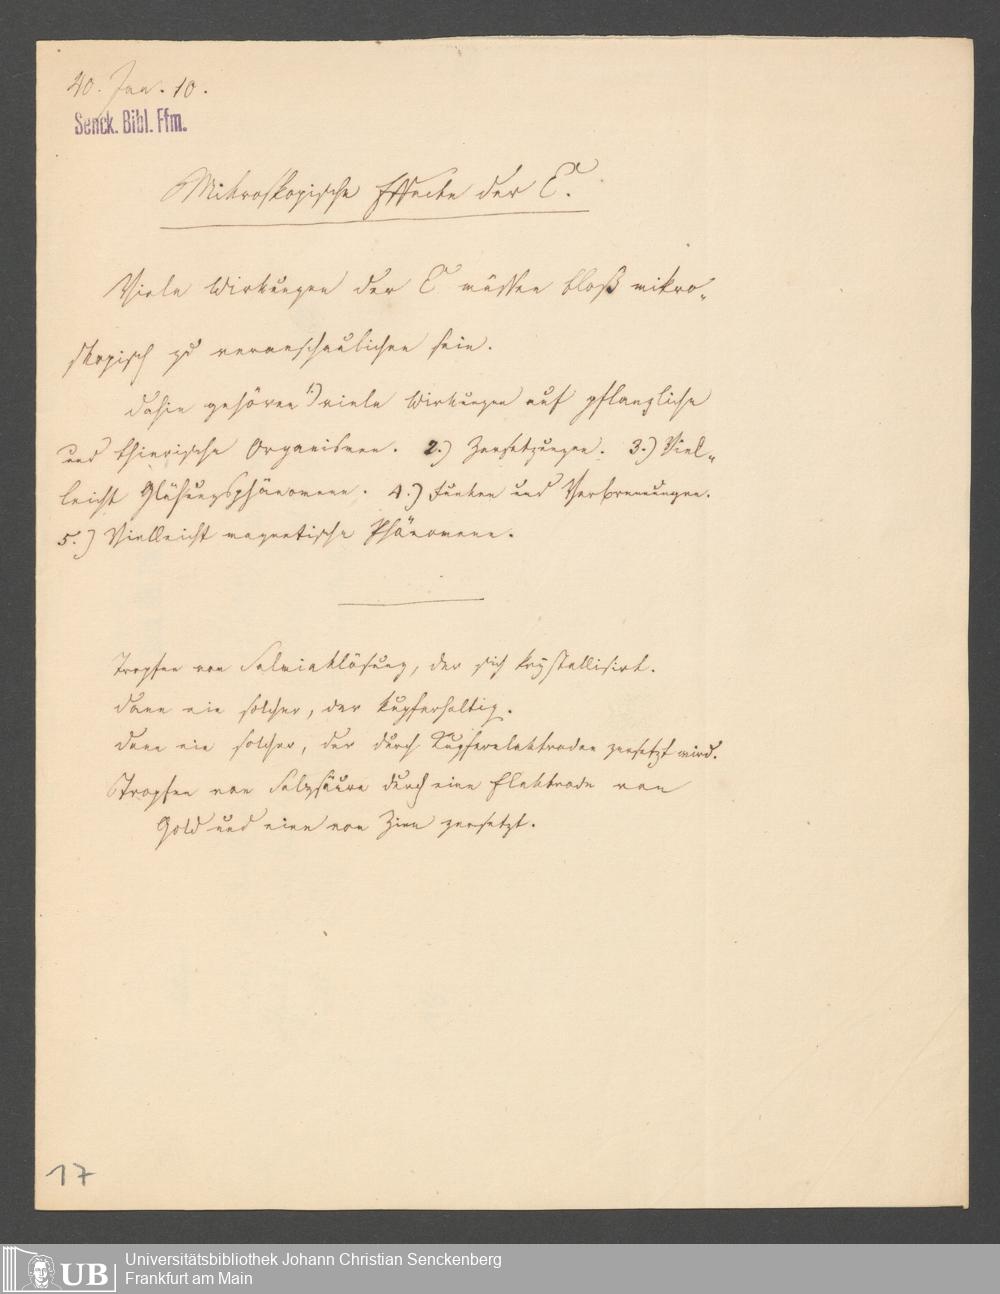 40. Jan. 10.
Senck. Bibl. Ffm.
Mikroskopische Effecte der E.
Viele Wirkungen der E müssen bloß mikro„
skopisch zu veranschaulichen sein.
Dahin gehören 1.) viele Wirkungen auf pflanzliche
und thierische Organismen. 2.) Zersetzungen. 3.) Viel„
leicht Glühungsphänomene. 4.) Funken und Verbrennungen.
5.) Vielleicht magnetische Phänomene.
Tropfen von Salmiaklösung, der sich krystallisirt.
Dann ein solcher, der kupferhaltig.
Dann ein solcher, der durch Kupferelektroden zersetzt wird.
Tropfen von Salzsäure durch eine Elektrode von
Gold und eine von Zinn zersetzt.
17
UB
Universitätsbibliothek Johann Christian Senckenberg
Frankfurt am Main